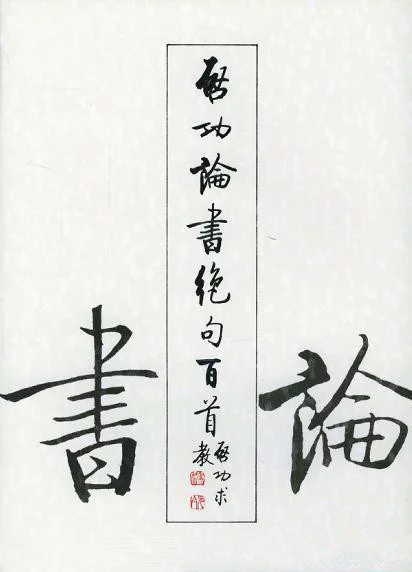 論
啓功論書絶句百首
啓功求
教
書